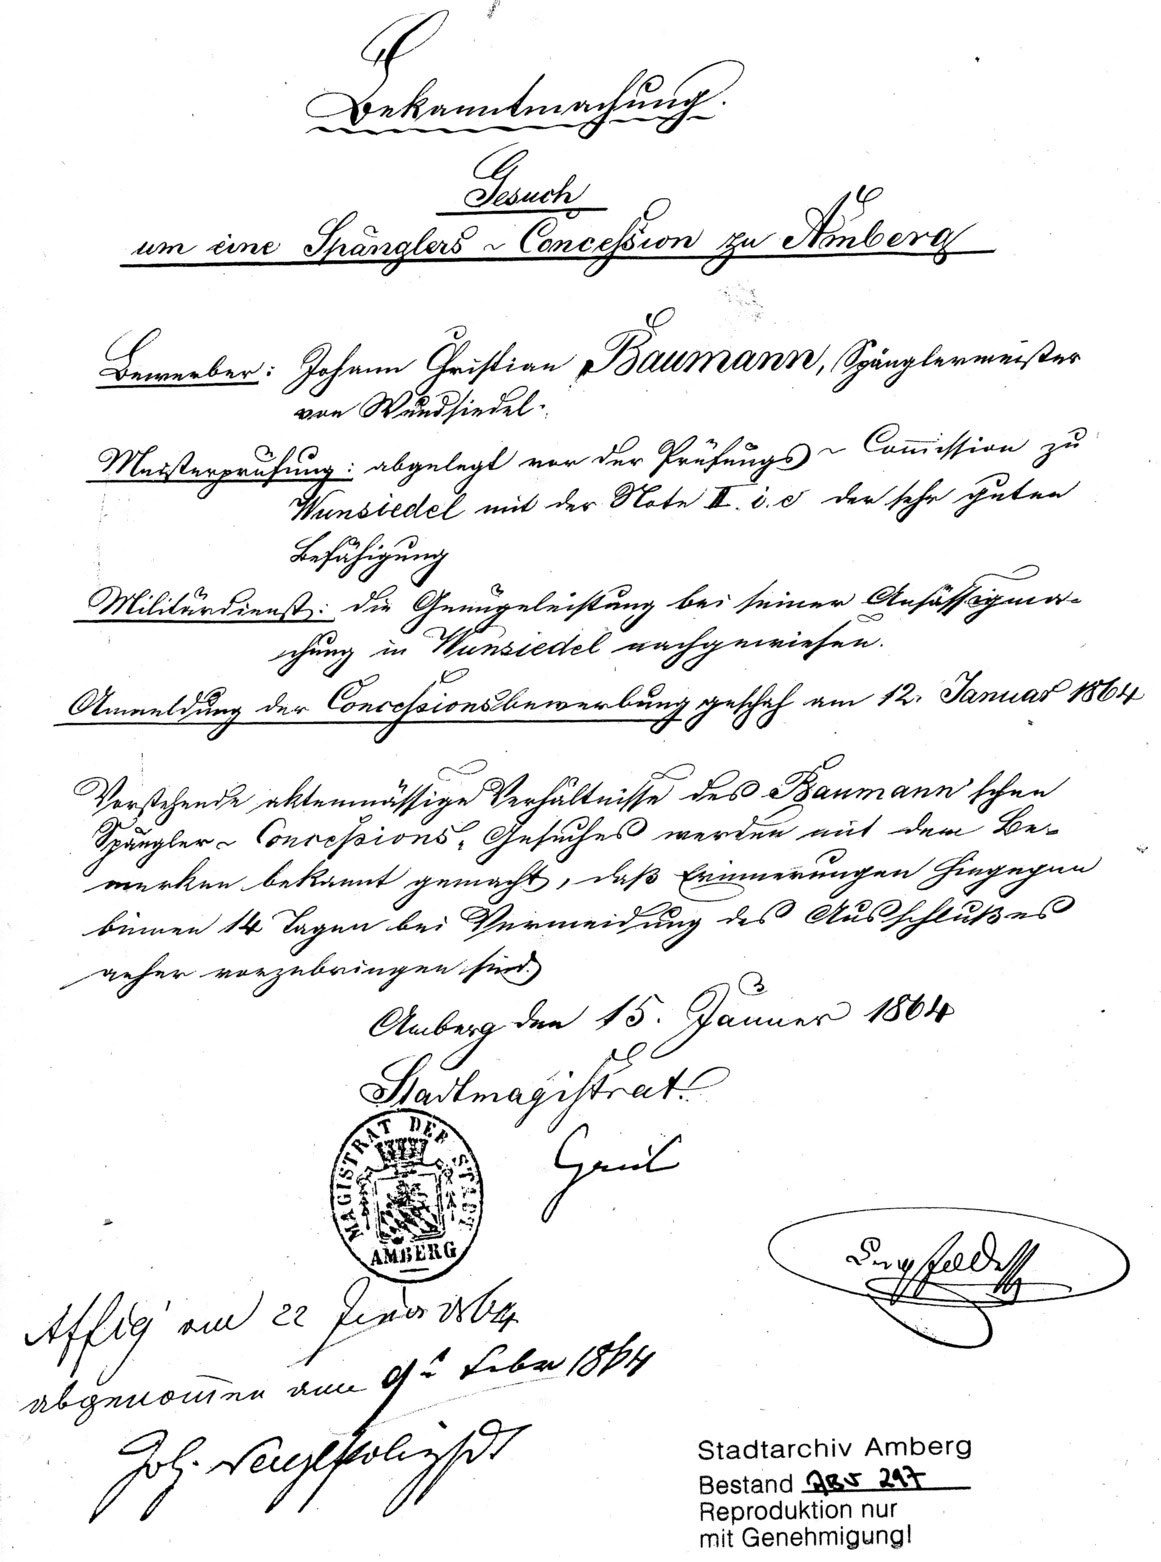 Bekanntmachung.
Gesuch
um eine Spänglers ~ Concession zu Amberg
Bewerber: Johann Christian Baumann, Spänglermeister
von Wundsiedel.
Meisterprüfung: abgelegt vor der Prüfungs ~ Commission zu
Wunsiedel mit der Note II. i. e der sehr guten
Befähigung
Militärdienst: die Genügeleistung bei seiner Ansässigma-
chung in Wunsiedel nachgewiesen.
Anmeldung der Concessionsbewerbung geschah am 12. Januar 1864
Vorstehende aktenmässige Verhältnisse des Baumann'schen
Spängler ~ Concessions, Gesuches werden mit dem Be-
merken bekannt gemacht, daß Erinnerungen hingegen
binnen 14 Tagen bei Vermeidung des Ausschlußes
anher vorzubringen sind.
Amberg den 15. Jänner 1864
Stadtmagistrat.
MAGISTRAT DER STADT
AMBERG
Affig am 22 1864
abgenommen am 9t Febr 1864
Joh.
Stadtarchiv Amberg
Bestand 297
Reproduktion nur
mit Genehmigung!